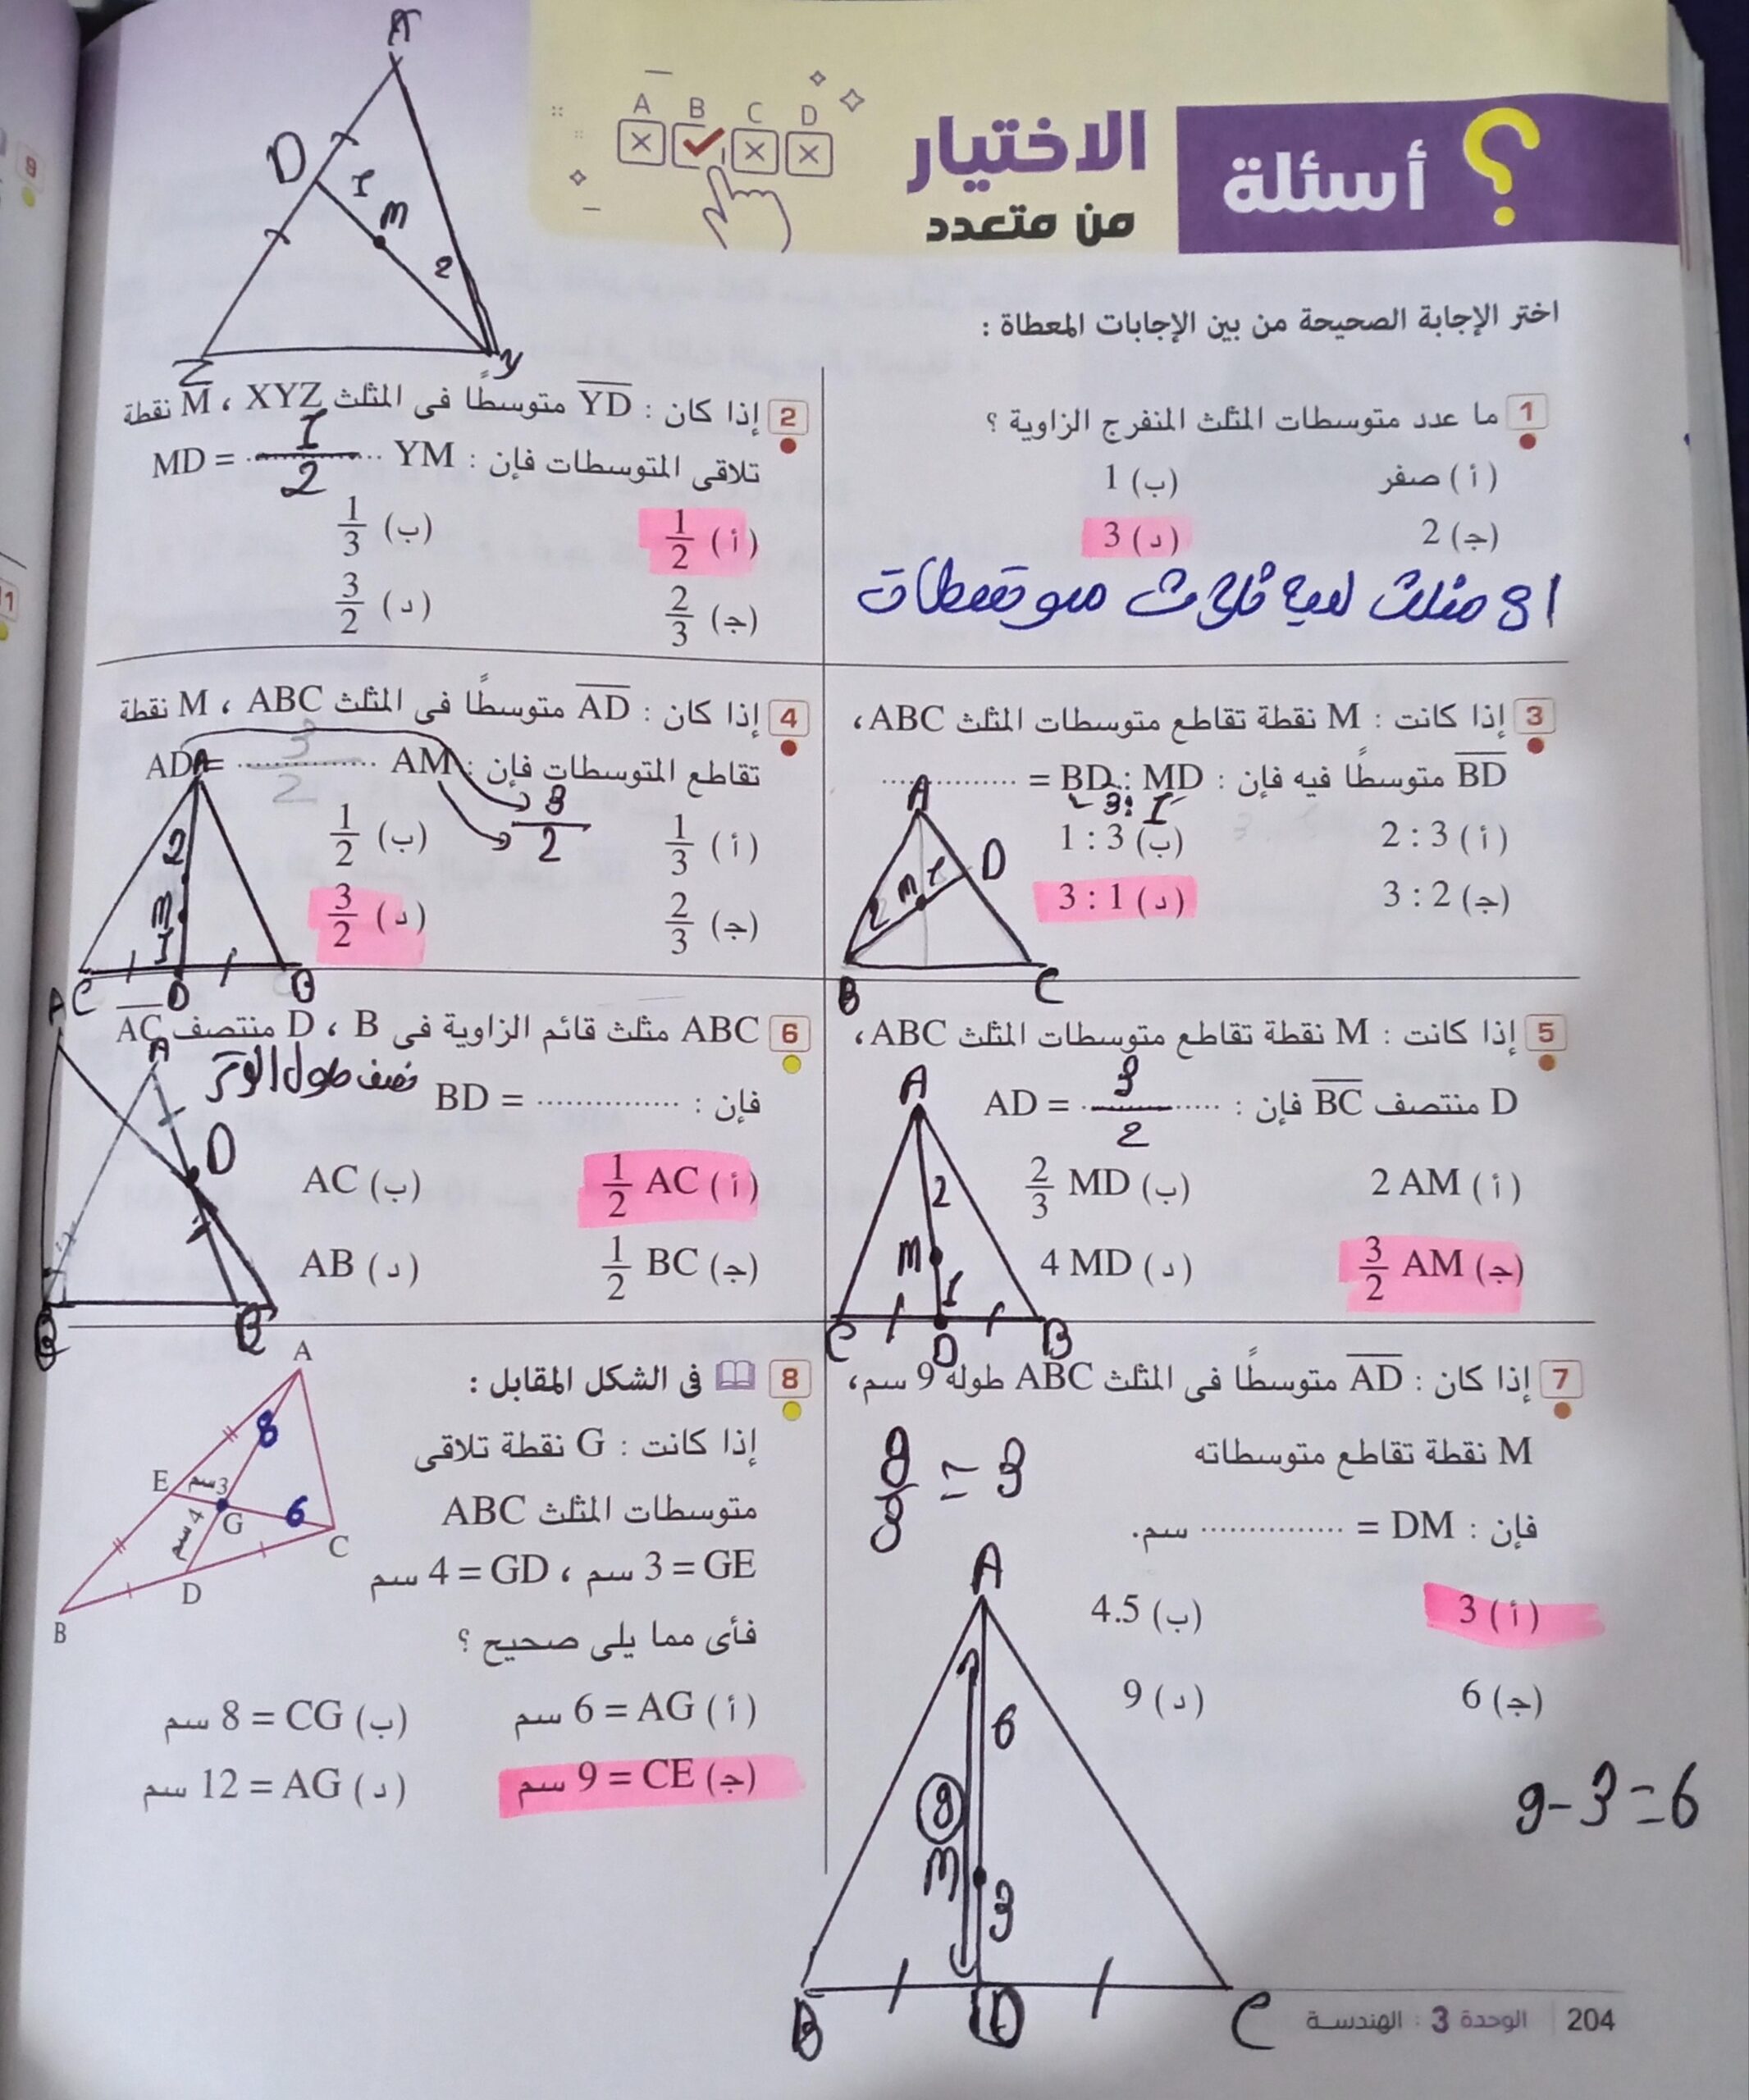 A B C D
أسئلة
الاختيار
من متعدد
اختر الإجابة الصحيحة من بين الإجابات المعطاة :
1 ما عدد متوسطات المثلث المنفرج الزاوية ؟
(أ) صفر (ب) 1
(جـ) 2 (د) 3
D
1
M
2
Z Y
2 إذا كان : YD متوسطًا فى المثلث XYZ ، M نقطة
تلاقى المتوسطات فإن : MD = ............... YM
1
2
(أ) 1/2 (ب) 1/3
(جـ) 2/3 (د) 3/2
3 إذا كانت : M نقطة تقاطع متوسطات المثلث ABC ،
BD متوسطًا فيه فإن : BD : MD = ...............
3 : 1
(أ) 2 : 3 (ب) 1 : 3
(جـ) 3 : 2 (د) 3 : 1
A
D
M 1
2
B C
4 إذا كان : AD متوسطًا فى المثلث ABC ، M نقطة
تقاطع المتوسطات فإن : AD = ............... AM
3
2
3
2
(أ) 1/3 (ب) 1/2
(جـ) 2/3 (د) 3/2
A
2
M
1
C D B
5 إذا كانت : M نقطة تقاطع متوسطات المثلث ABC ،
D منتصف BC فإن : AD = ...............
3
2
(أ) 2 AM (ب) 2/3 MD
(جـ) 3/2 AM (د) 4 MD
A
2
M
1
C D B
6 ABC مثلث قائم الزاوية فى B ، D منتصف AC
نصف طول الوتر
فإن : BD = ...............
(أ) 1/2 AC (ب) AC
(جـ) 1/2 BC (د) AB
A
A
D
7 إذا كان : AD متوسطًا فى المثلث ABC طوله 9 سم،
M نقطة تقاطع متوسطاته
فإن : DM = ............... سم.
(أ) 3 (ب) 4.5
(جـ) 6 (د) 9
9/3 = 3
9-3=6
A
6
9
M
3
B D C
8 فى الشكل المقابل :
إذا كانت : G نقطة تلاقى
متوسطات المثلث ABC
GE = 3 سم ، GD = 4 سم
فأى مما يلى صحيح ؟
(أ) AG = 6 سم (ب) CG = 8 سم
(جـ) CE = 9 سم (د) AG = 12 سم
A
8
E 3 سم
6
G
4 سم
C
D
B
204 الوحدة 3 : الهندسة